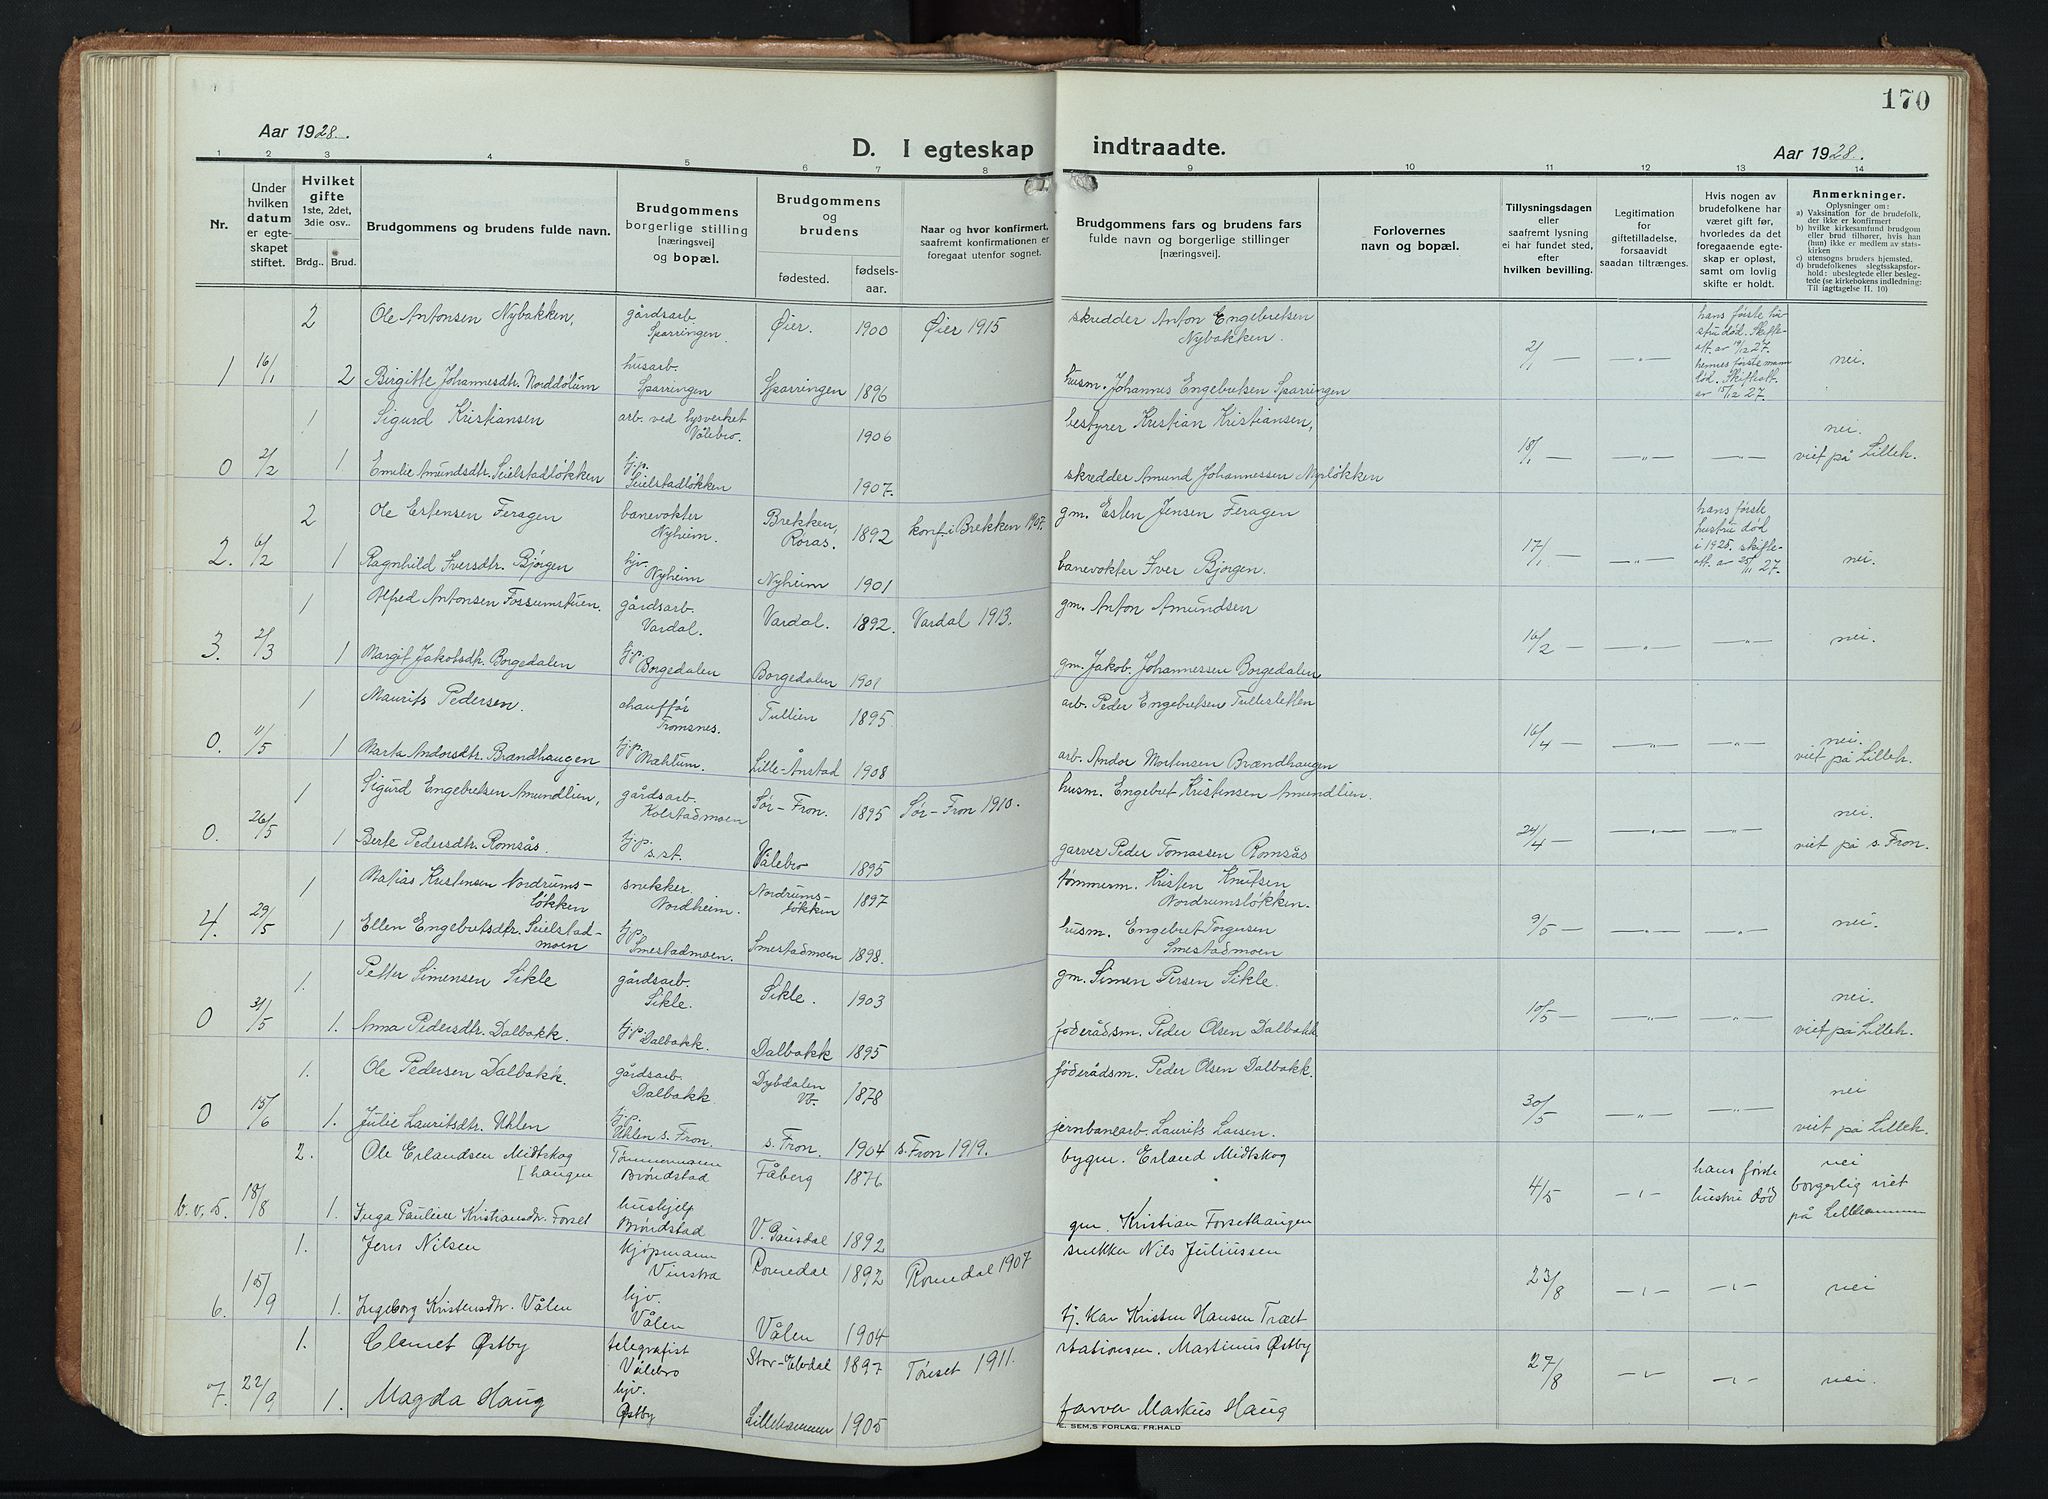 170
Aar 1928.
D. I egteskap indtraadte.
Aar 1928.
1 2 3 4 5 6 7 8 9 10 11 12 13 14
Nr.
Under hvilken datum er egteskapet stiftet.
Hvilket gifte 1ste, 2det, 3die osv..
Brdg.. Brud.
Brudgommens og brudens fulde navn.
Brudgommens borgerlige stilling [næringsvei] og bopæl.
Brudgommens og brudens
fødested. fødsels-aar.
Naar og hvor konfirmert, saafremt konfirmationen er foregaat utenfor sognet.
Brudgommens fars og brudens fars fulde navn og borgerlige stillinger [næringsvei].
Forlovernes navn og bopæl.
Tillysningsdagen eller saafremt lysning ei har fundet sted, efter hvilken bevilling.
Legitimation for giftetilladelse, forsaavidt saadan tiltrænges.
Hvis nogen av brudefolkene har været gift før, hvorledes da det foregaaende egteskap er opløst, samt om lovlig skifte er holdt.
Anmerkninger.
Oplysninger om:
a) Vaksination for de brudefolk, der ikke er konfirmert
b) hvilke kirkesamfund brudgom eller brud tilhører, hvis han (hun) ikke er medlem av statskirken
c) utensogns bruders hjemsted.
d) brudefolkenes slegtsskapsforhold: ubeslegtede eller beslegtede (se kirkebokens indledning: Til iagttagelse II. 10)
2 Ole Antonsen Nybakken, gårdsarb. Sparringen. Øier. 1900 Øier 1915 skredder Anton Engebretsen Nybakken. hans første hustru død. Skifteatt. av 19/12 27.
1 16/1 2 Birgitte Johannesdtr. Norddølum husarb. Sparringen Sparringen 1896 husm. Johannes Engebretsen Sparringen 2/1 — —„— hennes første mann død. Skifteatt. av 15/12 27. nei.
1 Sigurd Kristiansen arb. ved lysverket Vålebro. 1906 bestyrer Kristian Kristiansen, nei.
0 2/2 1. Emilie Amundsdtr. Seielstadløkken tj.p. Seielstadløkken 1907. skredder Amund Johannessen Myrløkken 18/1 — —„— —„— viet på Lilleh.
2 Ole Estensen Feragen banevokter Nyheim. Brekken, Røras. 1892 konf. i Brekken 1907. gm. Esten Jensen Feragen hans første hustru død i 1925. skifteatt. av 25/11 27.
2. 6/2 1 Ragnhild Iversdtr. Bjørgen hjv. Nyheim Nyheim 1901 banevokter Iver Bjørgen. 17/1 — —„— nei.
1 Alfred Antonsen Fossumstuen. gårdsarb. Vardal. Vardal. 1892. Vardal 1913. gm. Anton Amundsen
3. 2/3 1 Margit Jakobsdtr. Borgedalen tj.p. Borgedalen Borgedalen 1901 gm. Jakob Johannessen Borgedalen 16/2 — —„— —„— nei.
1 Maurits Pedersen. chauffør Tromsnes. Tullien 1895. arb. Peder Engebretsen Tullesletten
0. 11/5 1 Marta Andorsdtr. Brændhaugen tj.p. Mæhlum. Lille-Anstad 1908 arb. Andor Mortensen Brændhaugen 16/4 — —„— —„— nei. viet på Lilleh.
1 Sigurd Engebretsen Amundlien, gårdsarb. Kolstadmoen Sør-Fron. 1895 Sør-Fron 1910. husm. Engebret Kristensen Amundlien. nei.
0. 26/5 1 Berte Pedersdtr. Romsås. tj.p. s.st. Vålebro 1895 garver Peder Tomassen Romsås 24/4 — —„— —„— viet på s. Fron.
1 Matias Kristensen Nordrumsløkken snekker. Nordheim. Nordrumsløkken 1897 tømmerm. Kristen Knutsen Nordrumsløkken.
4. 29/5 1 Ellen Engebretsdtr. Seielstadmoen tj.p. Smestadmoen. Smestadmoen 1898. husm. Engebret Torgersen Smestadmoen 9/5 — —„— —„— nei.
1. Petter Simensen Sikle gårdsarb. Sikle. Sikle. 1903 gm. Simen Persen Sikle. nei.
0 31/5 1. Anna Pedersdtr. Dalbakk. tj.p. Dalbakk. Dalbakk 1895 føderådsm. Peder Olsen Dalbakk 10/5 — —„— —„— viet på Lilleh.
1. Ole Pedersen Dalbakk. gårdsarb. Dalbakk. Dybdalen Vb. 1878 føderådsm. Peder Olsen Dalbakk. nei
0 15/6 1. Julie Lauritsdtr. Uhlen tj.p. Uhlen s. Fron. s. Fron. 1904 s. Fron 1919. jernbanearb. Laurits Larsen. 30/5 —„— —„— viet på Lilleh.
2. Ole Erlandsen Midtskog [haugen Tømmermann Brøndstad Fåberg 1876 bygm. Erland Midtskog hans første hustru død nei
b.v. 5. 18/8 1. Inga Pauline Kristiansdtr. Forset hushjelp Brøndstad V. Gausdal 1892 gm. Kristian Forsethaugen 4/5 —„— borgerlig viet på Lillehammer
1. Jens Nilsen kjøpmann Vinstra Romedal 1892 Romedal 1907 snekker Nils Juliussen
6. 15/9 1. Ingeborg Kristensdtr. Vålen hjv. Vålen Vålen 1904 tj. kar Kristen Hansen Træet 23/8 —„— —„— nei
1. Clemet Østby telegrafist Vålebro Stor-Elvdal 1897 Tønset 1911. stationsm. Martinus Østby
7. 22/9 1. Magda Haug hjv. Østby Lillehammer 1905 farver Markus Haug 27/8 —„— —„— nei.
E. SEM,S FORLAG, FR.HALD